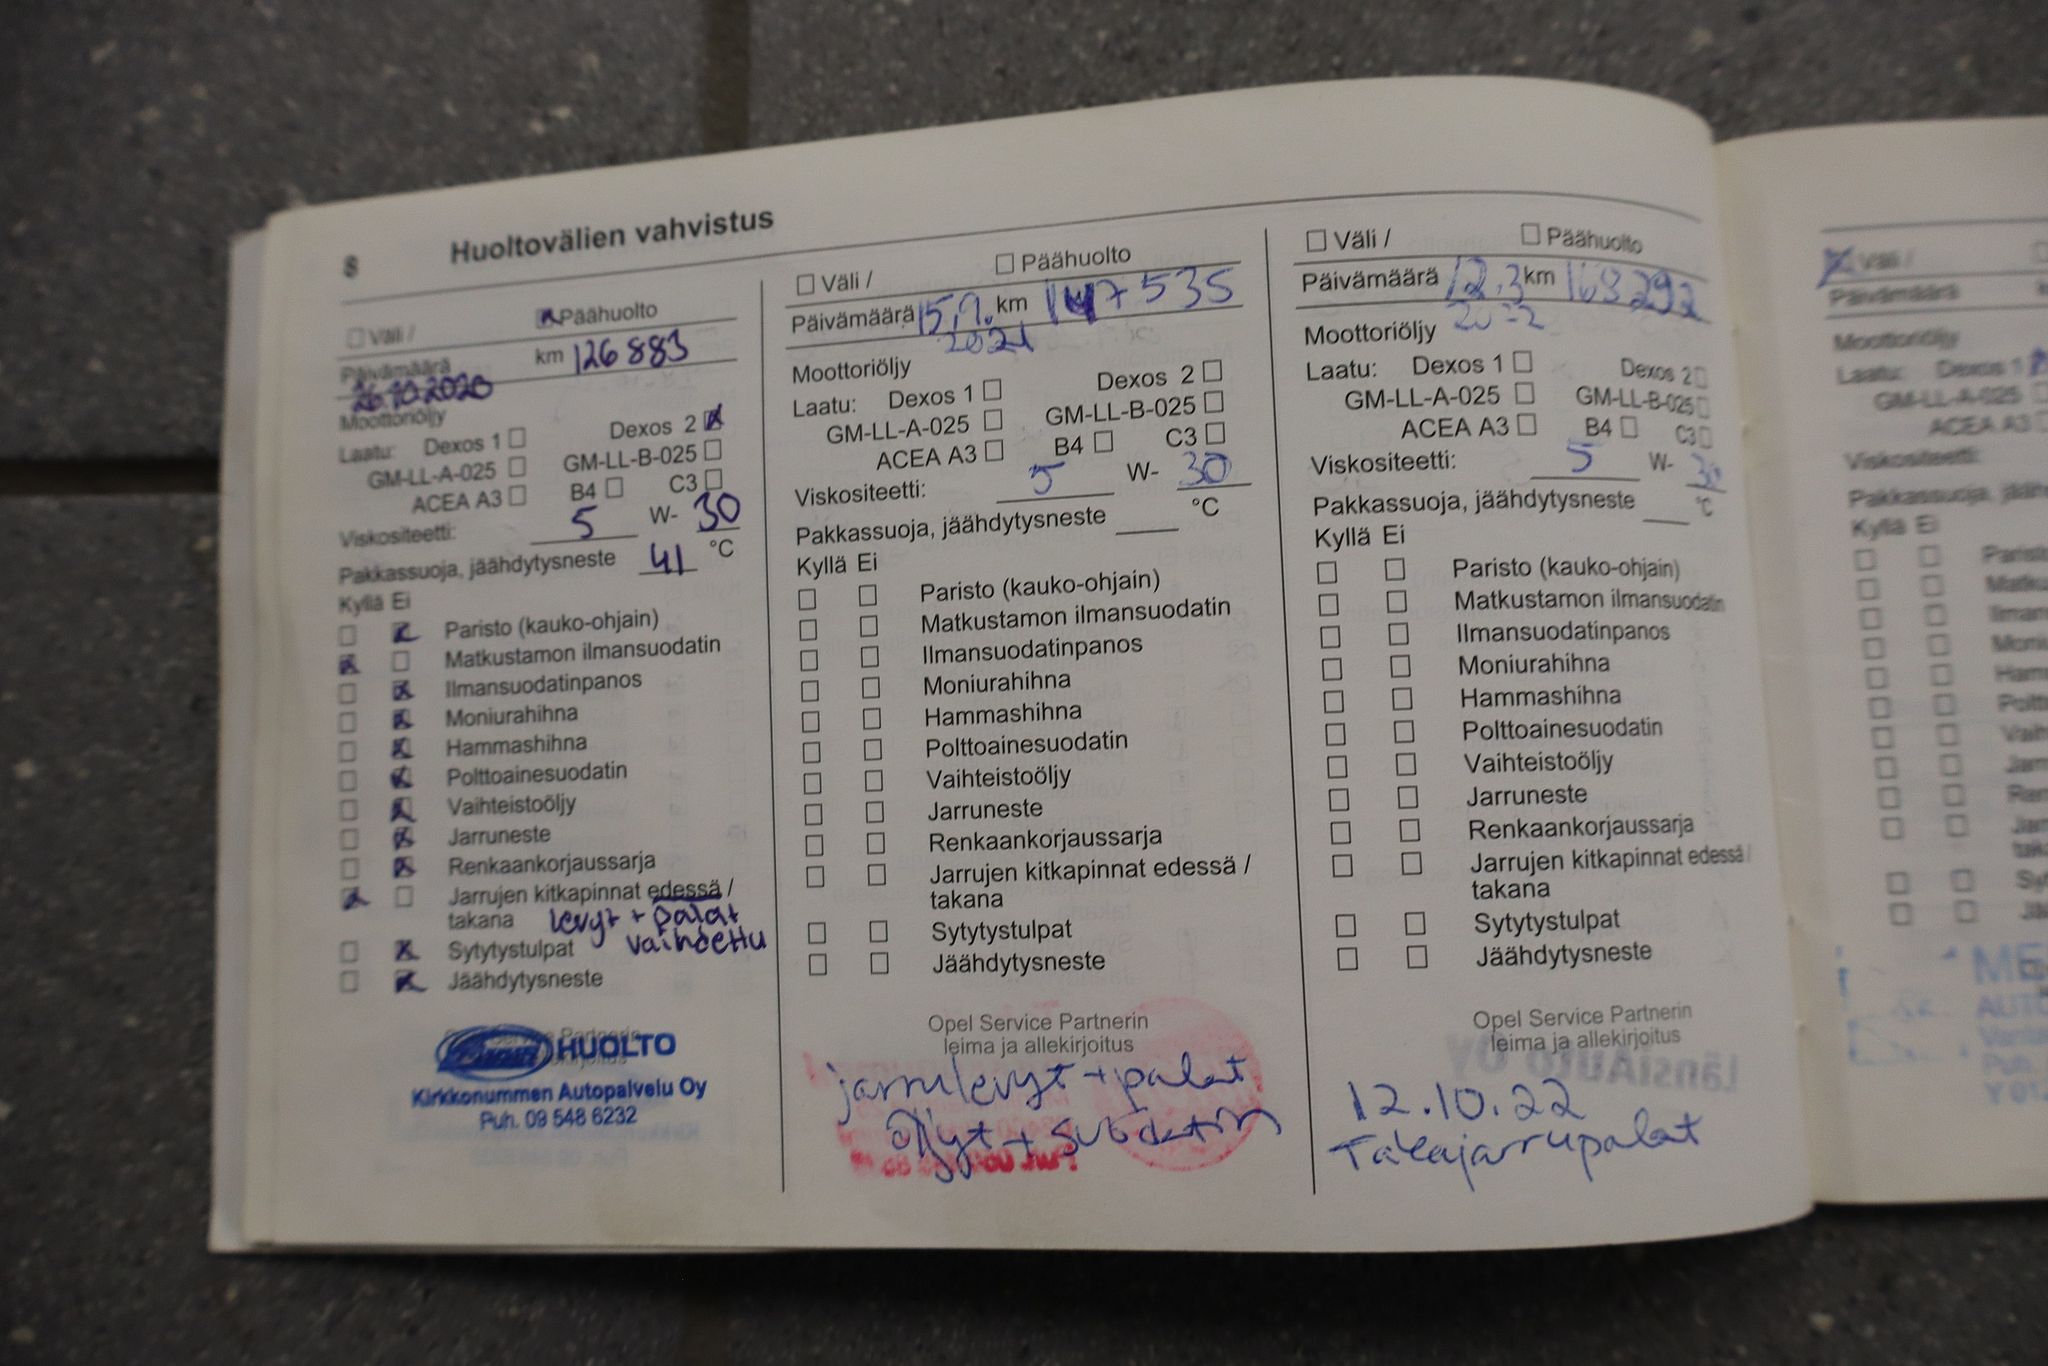 8 Huoltovälien vahvistus
Väli / Päähuolto
Päivämäärä km 126 883
26.10.2020
Moottoriöljy
Laatu: Dexos 1 Dexos 2
GM-LL-A-025 GM-LL-B-025
ACEA A3 B4 C3
Viskositeetti: 5 W- 30
Pakkassuoja, jäähdytysneste 41 °C
Kyllä Ei
Paristo (kauko-ohjain)
Matkustamon ilmansuodatin
Ilmansuodatinpanos
Moniurahihna
Hammashihna
Polttoainesuodatin
Vaihteistoöljy
Jarruneste
Renkaankorjaussarja
Jarrujen kitkapinnat edessä /
takana levyt + palat
vaihdettu
Sytytystulpat
Jäähdytysneste
HUOLTO
Kirkkonummen Autopalvelu Oy
Puh. 09 548 6232
Väli / Päähuolto
Päivämäärä 15.9. km 147 535
2021
Moottoriöljy
Laatu: Dexos 1 Dexos 2
GM-LL-A-025 GM-LL-B-025
ACEA A3 B4 C3
Viskositeetti: 5 W- 30
Pakkassuoja, jäähdytysneste °C
Kyllä Ei
Paristo (kauko-ohjain)
Matkustamon ilmansuodatin
Ilmansuodatinpanos
Moniurahihna
Hammashihna
Polttoainesuodatin
Vaihteistoöljy
Jarruneste
Renkaankorjaussarja
Jarrujen kitkapinnat edessä /
takana
Sytytystulpat
Jäähdytysneste
Opel Service Partnerin
leima ja allekirjoitus
jarrulevyt + palat
öljyt + suodatin
Väli / Päähuolto
Päivämäärä 12.3 km 168 292
2022
Moottoriöljy
Laatu: Dexos 1 Dexos 2
GM-LL-A-025 GM-LL-B-025
ACEA A3 B4 C3
Viskositeetti: 5 W- 30
Pakkassuoja, jäähdytysneste °C
Kyllä Ei
Paristo (kauko-ohjain)
Matkustamon ilmansuodatin
Ilmansuodatinpanos
Moniurahihna
Hammashihna
Polttoainesuodatin
Vaihteistoöljy
Jarruneste
Renkaankorjaussarja
Jarrujen kitkapinnat edessä /
takana
Sytytystulpat
Jäähdytysneste
Opel Service Partnerin
leima ja allekirjoitus
12.10.22
Takajarrupalat
Väli /
Päivämäärä
Moottoriöljy
Laatu: Dexos 1
GM-LL-A-025
ACEA A3
Viskositeetti:
Pakkassuoja,
Kyllä Ei